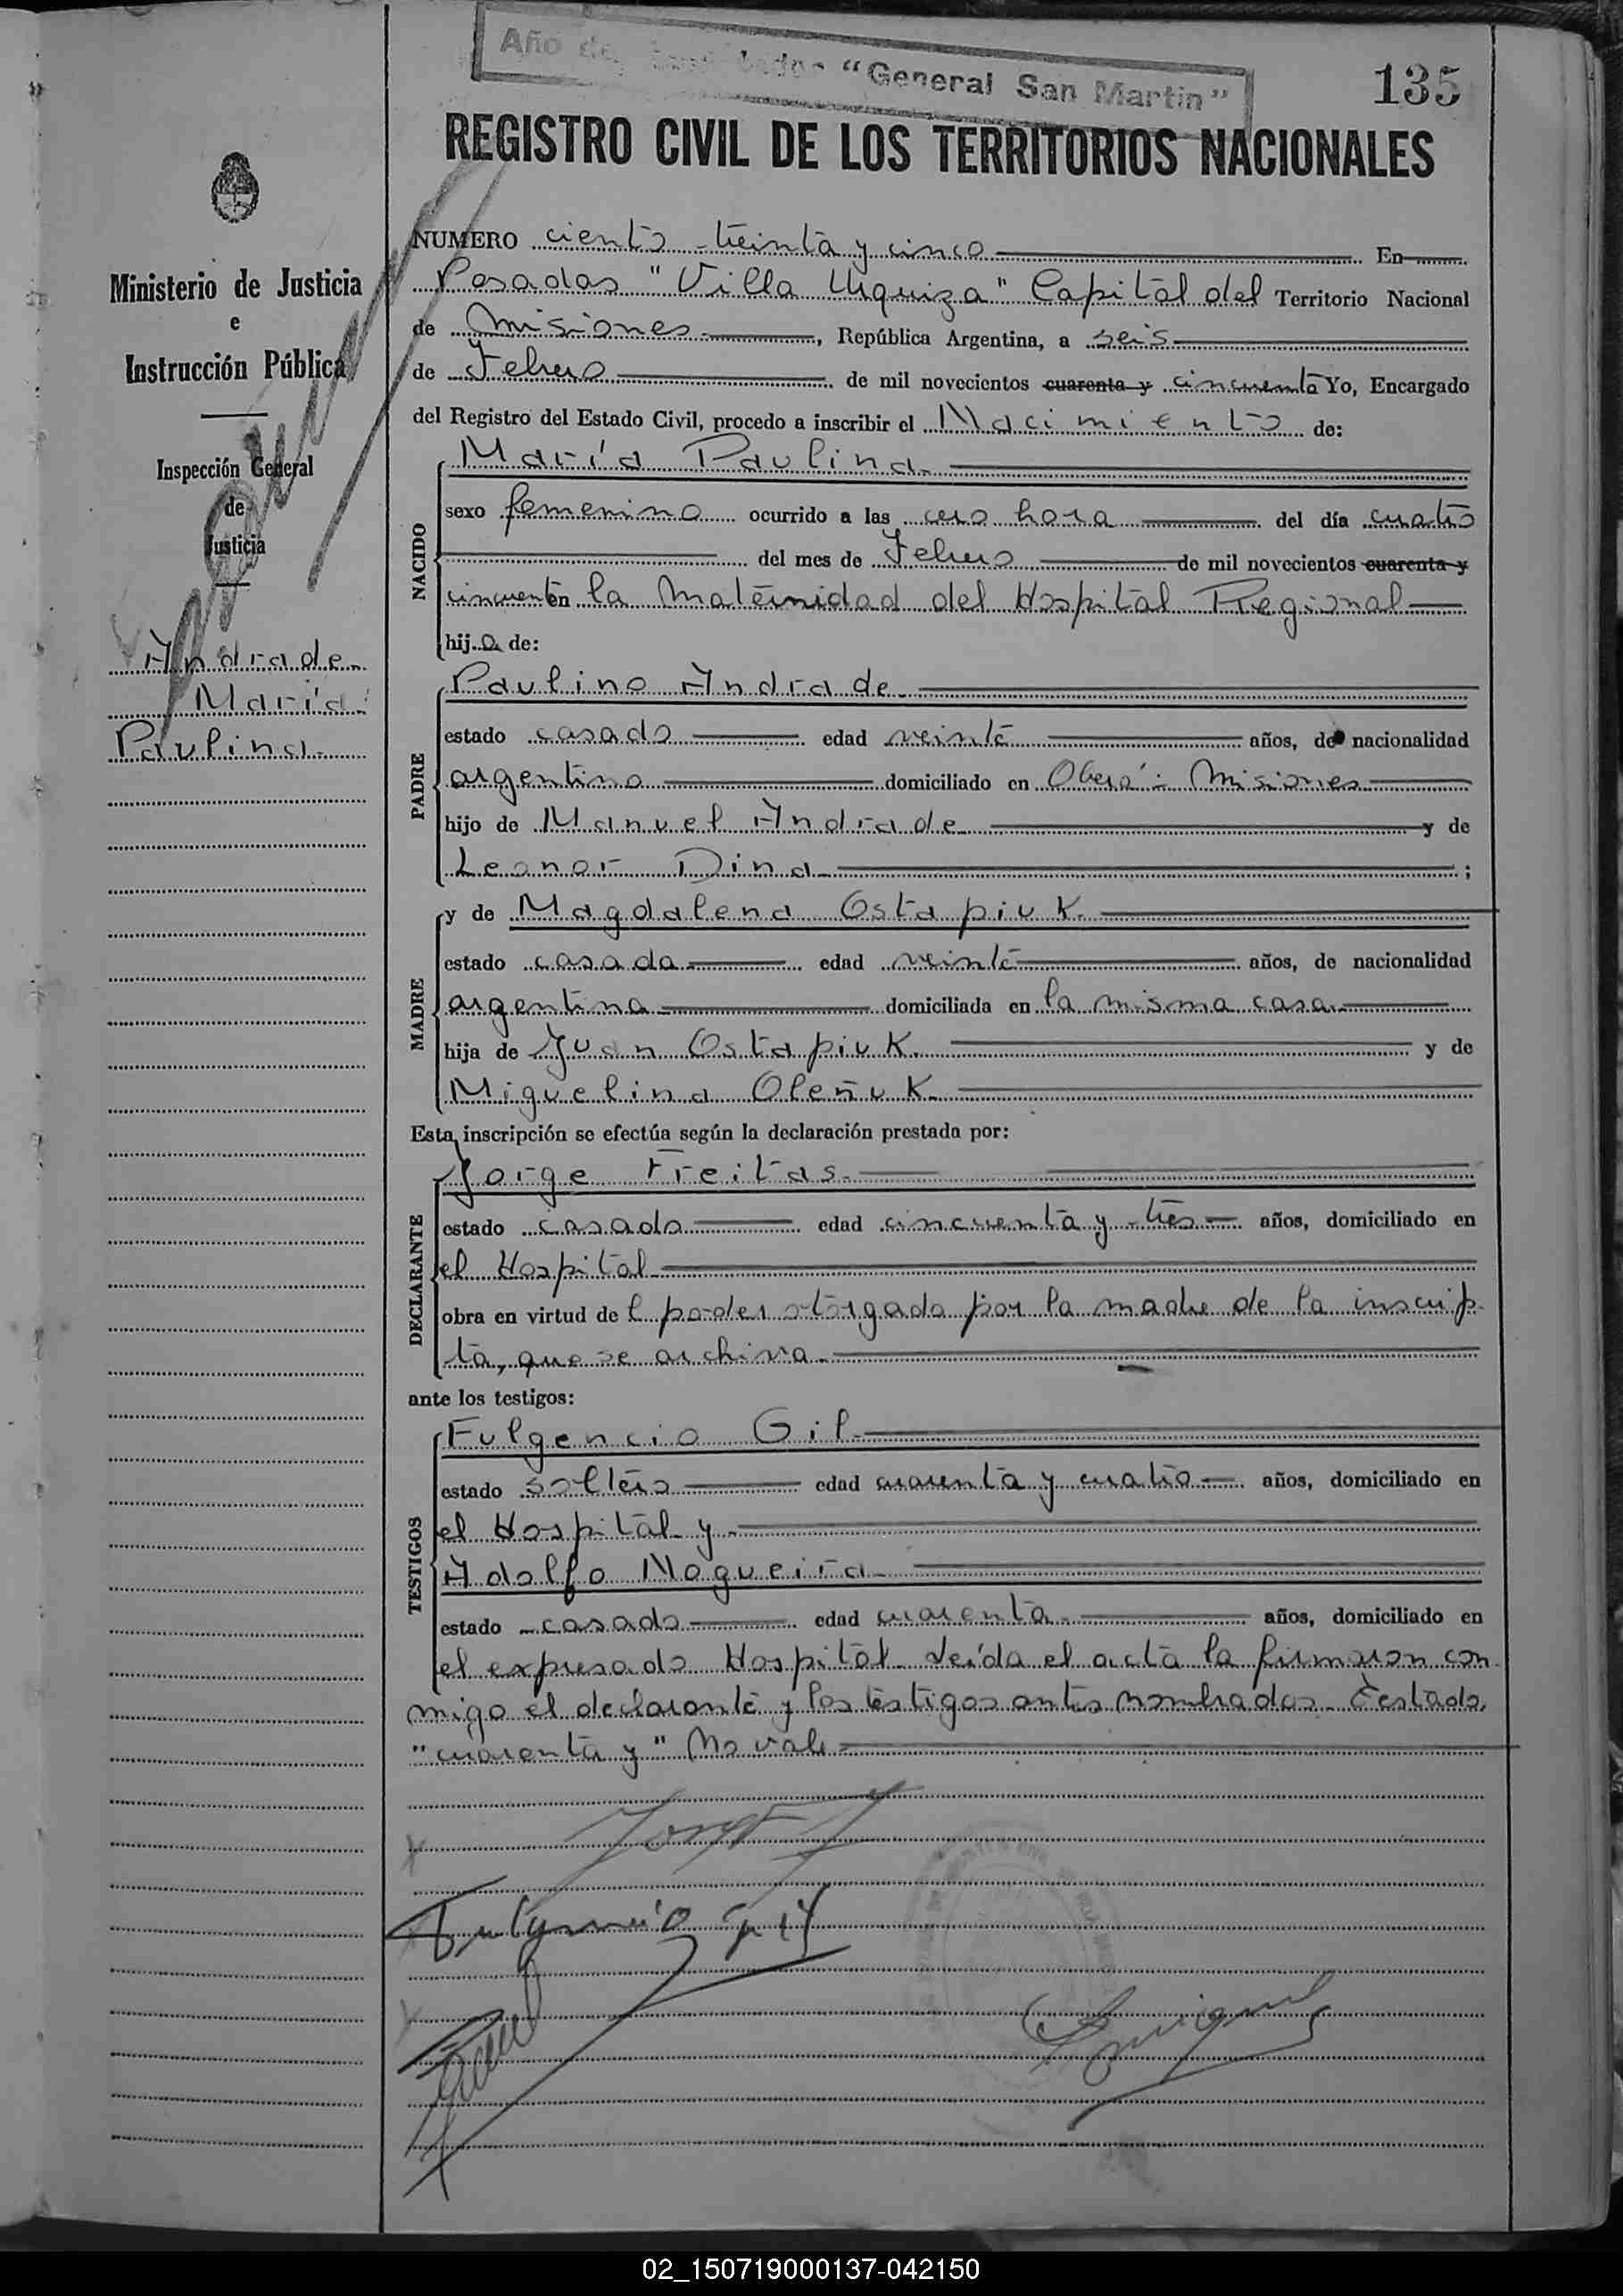 "General San Martin"
135
REGISTRO CIVIL DE LOS TERRITORIOS NACIONALES
Ministerio de Justicia
e
Instrucción Pública
Inspección General
de
Justicia
Andrade
María
Paulina
NUMERO ciento treinta y cinco En
Posadas "Villa Urquiza" Capital del Territorio Nacional
de Misiones, República Argentina, a seis
de Febrero de mil novecientos cuarenta y cincuenta Yo, Encargado
del Registro del Estado Civil, procedo a inscribir el Nacimiento de:
NACIDO
María Paulina
sexo femenino ocurrido a las cero hora del día cuatro
del mes de Febrero de mil novecientos cuarenta y
cincuenta en la Maternidad del Hospital Regional
hija de:
PADRE
Paulino Andrade
estado casado edad veinte años, de nacionalidad
argentino domiciliado en Oberá - Misiones
hijo de Manuel Andrade y de
Leonor Dina ;
MADRE
y de Magdalena Ostapiuk
estado casada edad veinte años, de nacionalidad
argentina domiciliada en la misma casa.
hija de Juan Ostapiuk. y de
Miguelina Oleñuk.
Esta inscripción se efectúa según la declaración prestada por:
DECLARANTE
Jorge Freitas.
estado casado edad cincuenta y tres años, domiciliado en
el Hospital
obra en virtud del poder otorgado por la madre de la inscrip-
ta, que se archiva.
ante los testigos:
TESTIGOS
Fulgencio Gil
estado soltero edad cuarenta y cuatro años, domiciliado en
el Hospital y
Adolfo Nogueira
estado casado edad cuarenta años, domiciliado en
el expresado Hospital. Leída el acta la firmaron con
migo el declarante y los testigos antes nombrados. Testado
"cuarenta y" No vale
Fulgencio Gil
02_150719000137-042150